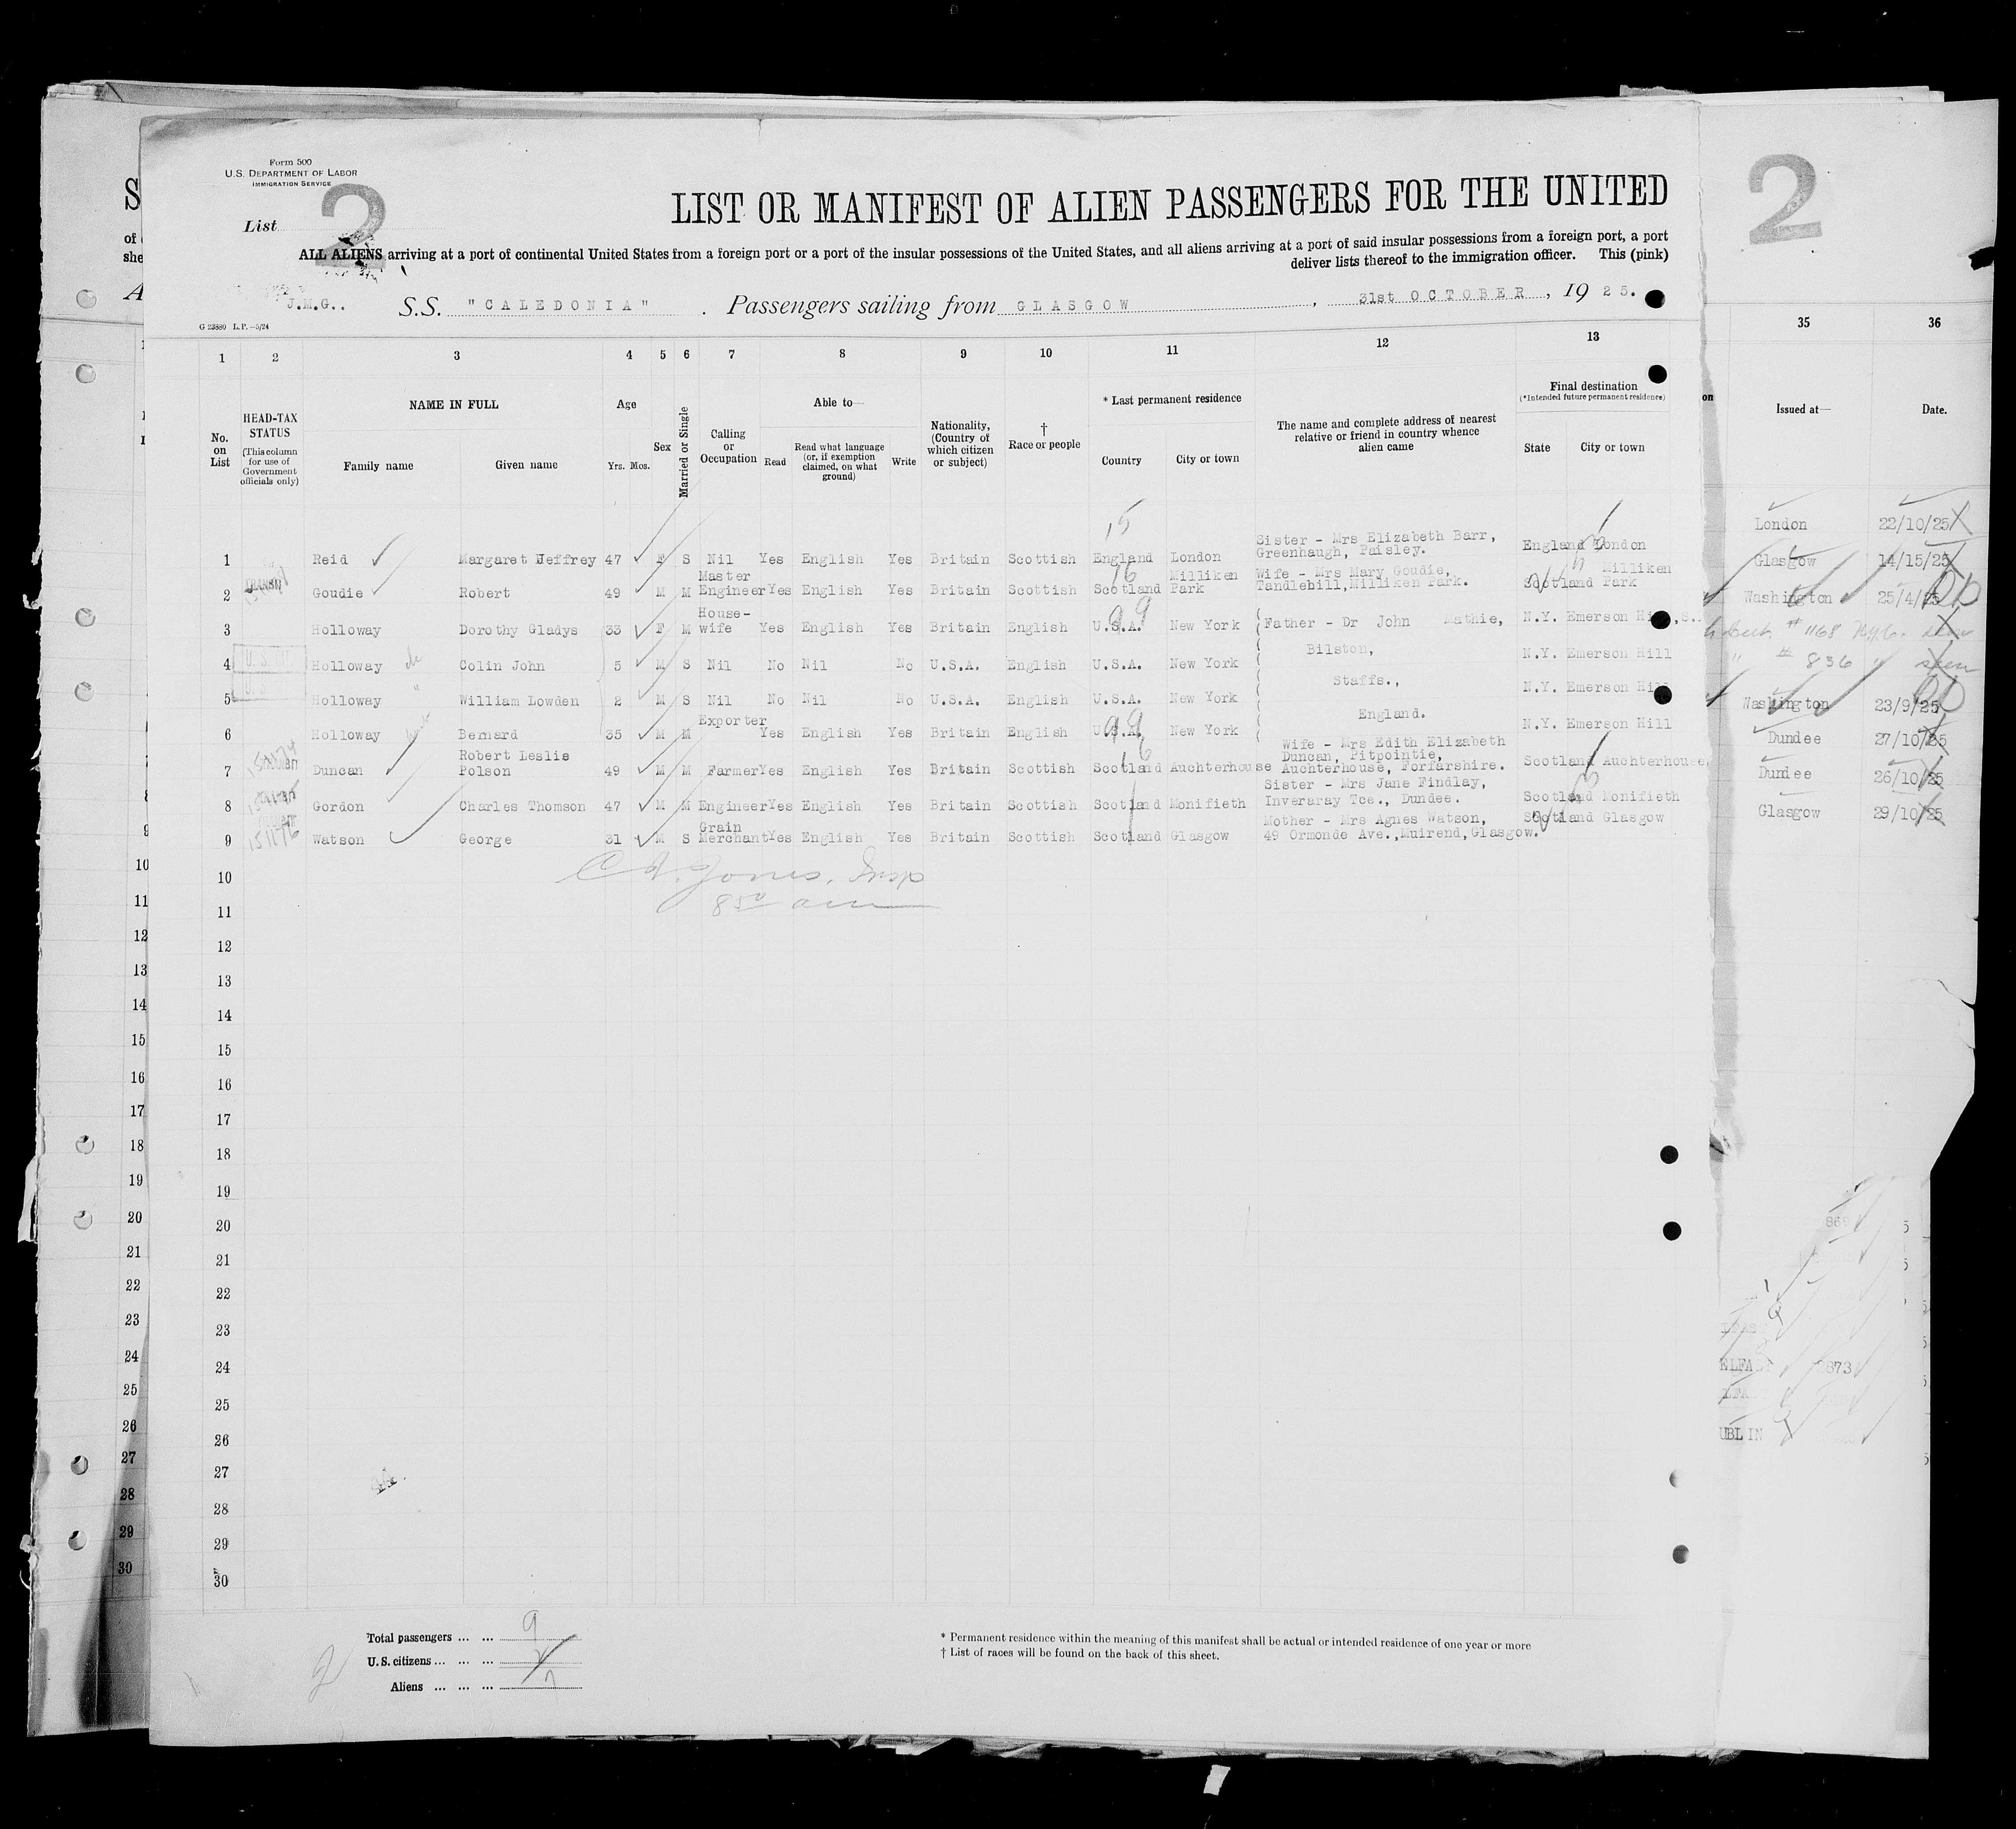 Form 500
U.S. DEPARTMENT OF LABOR
IMMIGRATION SERVICE
2
2
List
LIST OR MANIFEST OF ALIEN PASSENGERS FOR THE UNITED
ALL ALIENS arriving at a port of continental United States from a foreign port or a port of the insular possessions of the United States, and all aliens arriving at a port of said insular possessions from a foreign port, a port
deliver lists thereof to the immigration officer. This (pink)
J.M.G..
S.S. "CALEDONIA". Passengers sailing from GLASGOW, 31st OCTOBER, 1925.
G 23880 L.P.—5/24
1 2 3 4 5 6 7 8 9 10 11 12 13 35 36
No. on List
HEAD-TAX STATUS
(This column for use of Government officials only)
NAME IN FULL
Family name Given name
Age
Yrs. Mos.
Sex
Married or Single
Calling or Occupation
Able to—
Read
Read what language (or, if exemption claimed, on what ground)
Write
Nationality, (Country of which citizen or subject)
† Race or people
* Last permanent residence
Country City or town
The name and complete address of nearest relative or friend in country whence alien came
Final destination
(*Intended future permanent residence)
State City or town
Issued at— Date.
15
1 Reid Margaret Jeffrey 47 F S Nil Yes English Yes Britain Scottish England London Sister - Mrs Elizabeth Barr, Greenhaugh, Paisley. England London London 22/10/25
16
2 Goudie Robert 49 M M Master Engineer Yes English Yes Britain Scottish Scotland Milliken Park Wife - Mrs Mary Goudie, Tandlebill, Milliken Park. Scotland Milliken Park Glasgow 14/15/25
99
3 Holloway Dorothy Gladys 33 F M House-wife Yes English Yes Britain English U.S.A. New York Father - Dr John Mathie, N.Y. Emerson Washington 25/4/25
4 Holloway Colin John 5 M S Nil No Nil No U.S.A. English U.S.A. New York Bilston, N.Y. Emerson Hill # 1168 seen
5 Holloway William Lowden 2 M S Nil No Nil No U.S.A. English U.S.A. New York Staffs., N.Y. Emerson Hill " # 836 " seen
99
6 Holloway Bernard 35 M M Exporter Yes English Yes Britain English U.S.A. New York England. N.Y. Emerson Hill Washington 23/9/25
16
7 Duncan Robert Leslie Polson 49 M M Farmer Yes English Yes Britain Scottish Scotland Auchterhouse Wife - Mrs Edith Elizabeth Duncan, Pitpointie, Auchterhouse, Forfarshire. Scotland Auchterhouse Dundee 27/10/25
8 Gordon Charles Thomson 47 M M Engineer Yes English Yes Britain Scottish Scotland Monifieth Sister - Mrs Jane Findlay, Inveraray Tce., Dundee. Scotland Monifieth Dundee 26/10/25
9 Watson George 31 M S Grain Merchant Yes English Yes Britain Scottish Scotland Glasgow Mother - Mrs Agnes Watson, 49 Ormonde Ave., Muirend, Glasgow. Scotland Glasgow Glasgow 29/10/25
10
Jones, Insp
11
8 50 am
12
13
14
15
16
17
18
19
20
21
22
23
24
25
26
27
28
29
30
Total passengers ... ... 9
U.S. citizens ... ... ... 2
Aliens ... ... ... 7
2
* Permanent residence within the meaning of this manifest shall be actual or intended residence of one year or more
† List of races will be found on the back of this sheet.